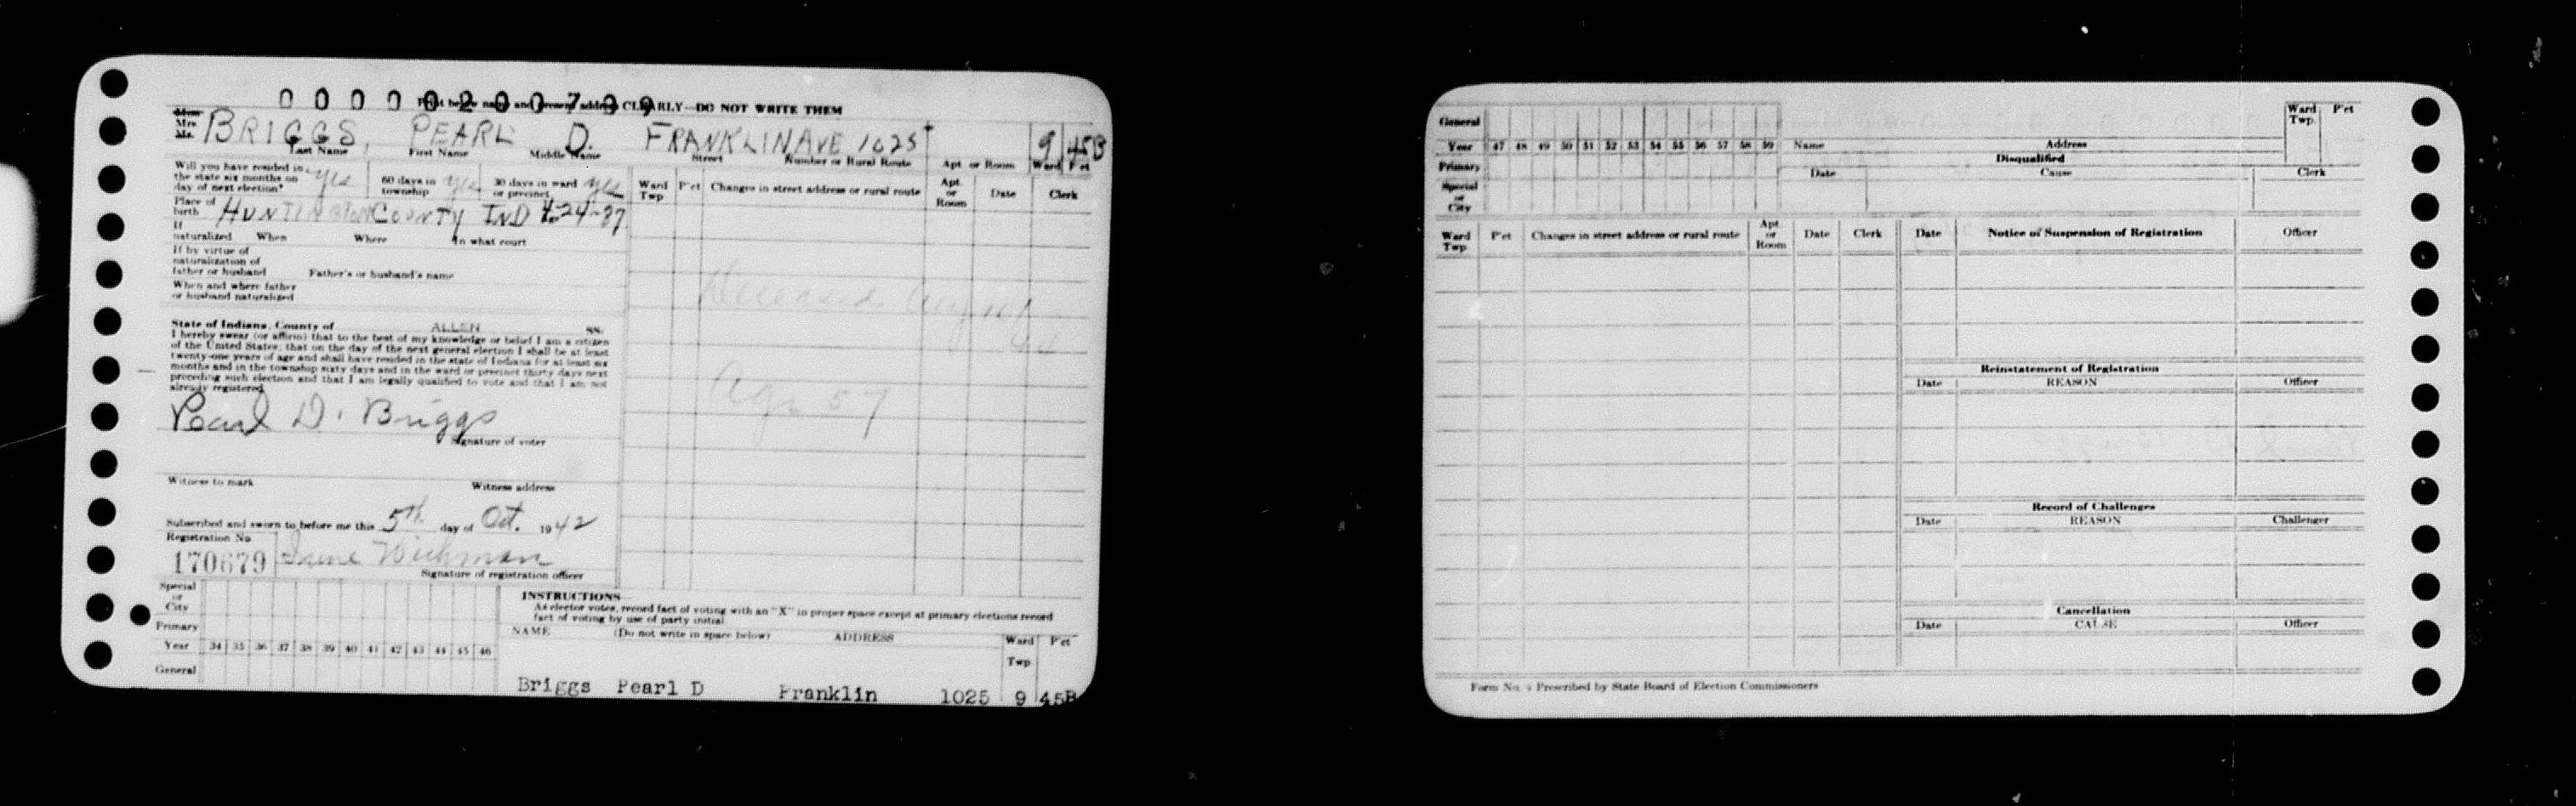 0 0 0 0 0 2 0 0 7 3 9
Print below name and present address CLEARLY—DO NOT WRITE THEM
Miss
Mrs.
Mr.
BRIGGS, PEARL D. FRANKLIN AVE 1025 9 45B
Last Name First Name Middle Name Street Number or Rural Route Apt. or Room Ward P'ct
Will you have resided in the state six months on day of next election? yes 60 days in township yes 30 days in ward or precinct yes
Ward Twp P'ct Changes in street address or rural route Apt. or Room Date Clerk
Place of birth HUNTINGTON COUNTY IND 4-24-87
If naturalized When Where In what court
If by virtue of naturalization of father or husband Father's or husband's name
When and where father or husband naturalized
Deceased Aug
Age 57
State of Indiana, County of ALLEN SS:
I hereby swear (or affirm) that to the best of my knowledge or belief I am a citizen
of the United States; that on the day of the next general election I shall be at least
twenty-one years of age and shall have resided in the state of Indiana for at least six
months and in the township sixty days and in the ward or precinct thirty days next
preceding such election and that I am legally qualified to vote and that I am not
already registered.
Pearl D. Briggs
Signature of voter
Witness to mark Witness address
Subscribed and sworn to before me this 5th day of Oct. 1942
Registration No.
170679 Wichman
Signature of registration officer
Special or City
Primary
Year 34 35 36 37 38 39 40 41 42 43 44 45 46
General
INSTRUCTIONS—
As elector votes, record fact of voting with an "X" in proper space except at primary elections record
fact of voting by use of party initial.
NAME (Do not write in space below) ADDRESS Ward Twp P'ct
Briggs Pearl D Franklin 1025 9 45B
General
Year 47 48 49 50 51 52 53 54 55 56 57 58 59 Name Address Ward Twp. P'ct
Primary
Special or City
Disqualified
Date Cause Clerk
Ward Twp P'ct Changes in street address or rural route Apt or Room Date Clerk
Date Notice of Suspension of Registration Officer
Reinstatement of Registration
Date REASON Officer
Record of Challenges
Date REASON Challenger
Cancellation
Date CAUSE Officer
Form No. Prescribed by State Board of Election Commissioners